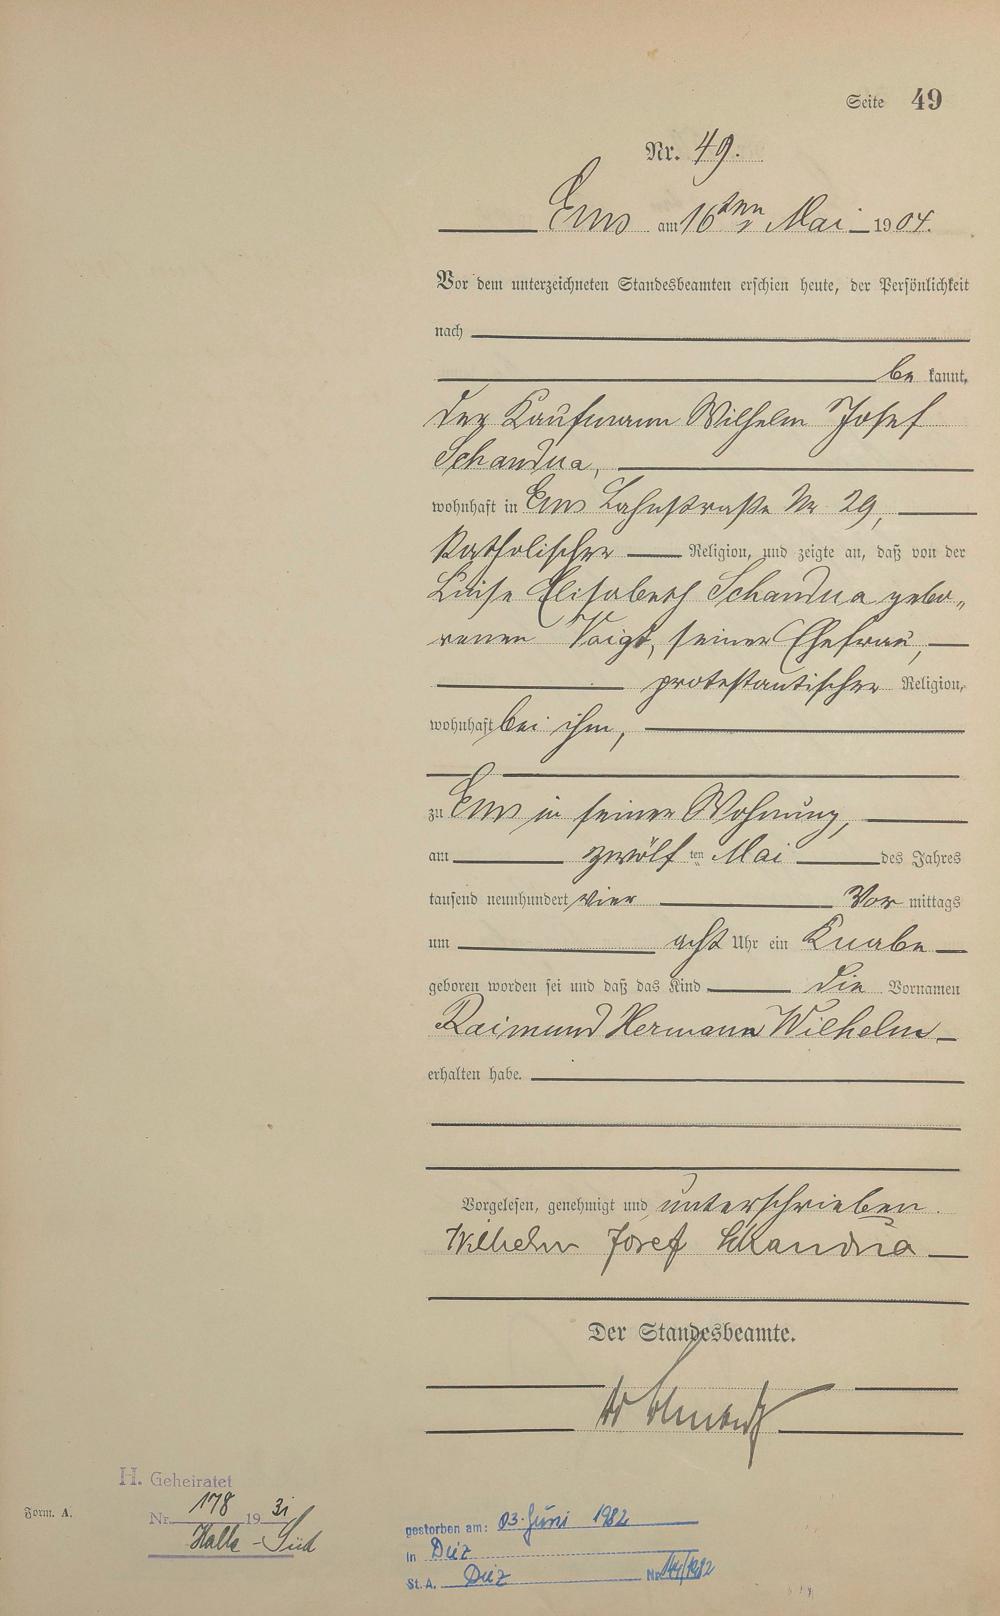 Seite 49
Nr. 49.
Ems am 16ten Mai 1904.
Vor dem unterzeichneten Standesbeamten erschien heute, der Persönlichkeit
nach
be kannt,
der Kaufmann Wilhelm Josef
Schandua,
wohnhaft in Ems Lahnstraße Nr 29,
katholischer Religion, und zeigte an, daß von der
Luise Elisabeth Schandua gebo„
renen Voigt, seiner Ehefrau,
protestantischer Religion,
wohnhaft bei ihm,
zu Ems in seiner Wohnung,
am zwölf ten Mai des Jahres
tausend neunhundert vier Vor mittags
um acht Uhr ein Knabe
geboren worden sei und daß das Kind die Vornamen
Raimund Hermann Wilhelm
erhalten habe.
Vorgelesen, genehmigt und unterschrieben.
Wilhelm Josef Schandua
Der Standesbeamte.
H. Geheiratet
Nr. 178 1931
Halle-Süd
Form. A.
gestorben am: 03. Juni 1982
in Diez
St. A. Diez Nr.